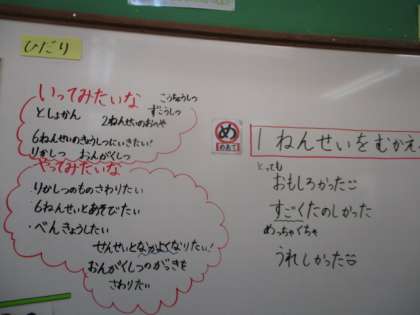 ひだり
いってみたいな
こうちょうしつ
としょかん
ずこうしつ
2ねんせいのおへや
6ねんせいのきょうしつにいきたい!
りかしつ おんがくしつ
やってみたいな
・りかしつのものさわりたい
・6ねんせいとあそびたい
・べんきょうしたい
せんせいとなかよくなりたい!
おんがくしつのがっきを
さわりたい
め
めあて
1ねんせいをむかえ
とっても
おもしろかった
すごくたのしかった
めっちゃくちゃ
うれしかった